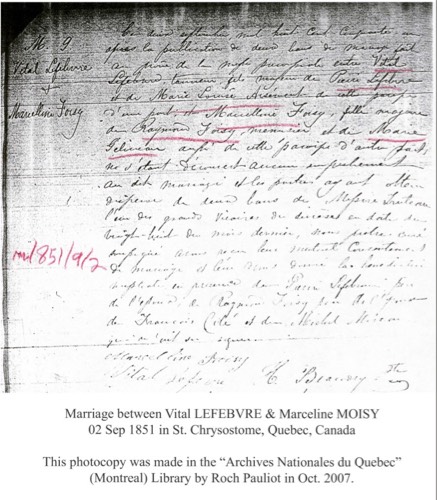 M. 9
Vital Lefebvre
&
Marcelline Foisy
Le deux septembre mil huit cent cinquante un
après la publication de deux bans de mariage fait
au prône de la messe paroissiale entre Vital
Lefebvre tanneur fils majeur de Pierre Lefebvre
et de Marie Louise de cette paroisse
d'une part, et Marcelline Foisy, fille majeure
de Raymond Foisy, menuisier et de Marie
Gelineau aussi de cette paroisse d'autre part,
ne s'étant découvert aucun empêchement
au dit mariage et les parties ayant obtenu
dispense de deux bans de Messire
l'un des grands vicaires du diocèse en date du
vingt-huit du mois dernier, nous prêtre curé
soussigné avons reçu leur mutuel consentement
de mariage et leur avons donné la bénédiction
nuptiale en présence de Pierre Lefebvre père
de l'époux, de Raymond Foisy père de l'épouse
de François Coté et de Michel
qui ont signé
Marceline Foisy
Vital Lefebvre Beaudry Ptre
mil851/9/2
Marriage between Vital LEFEBVRE & Marceline MOISY
02 Sep 1851 in St. Chrysostome, Quebec, Canada
This photocopy was made in the “Archives Nationales du Quebec”
(Montreal) Library by Roch Pauliot in Oct. 2007.